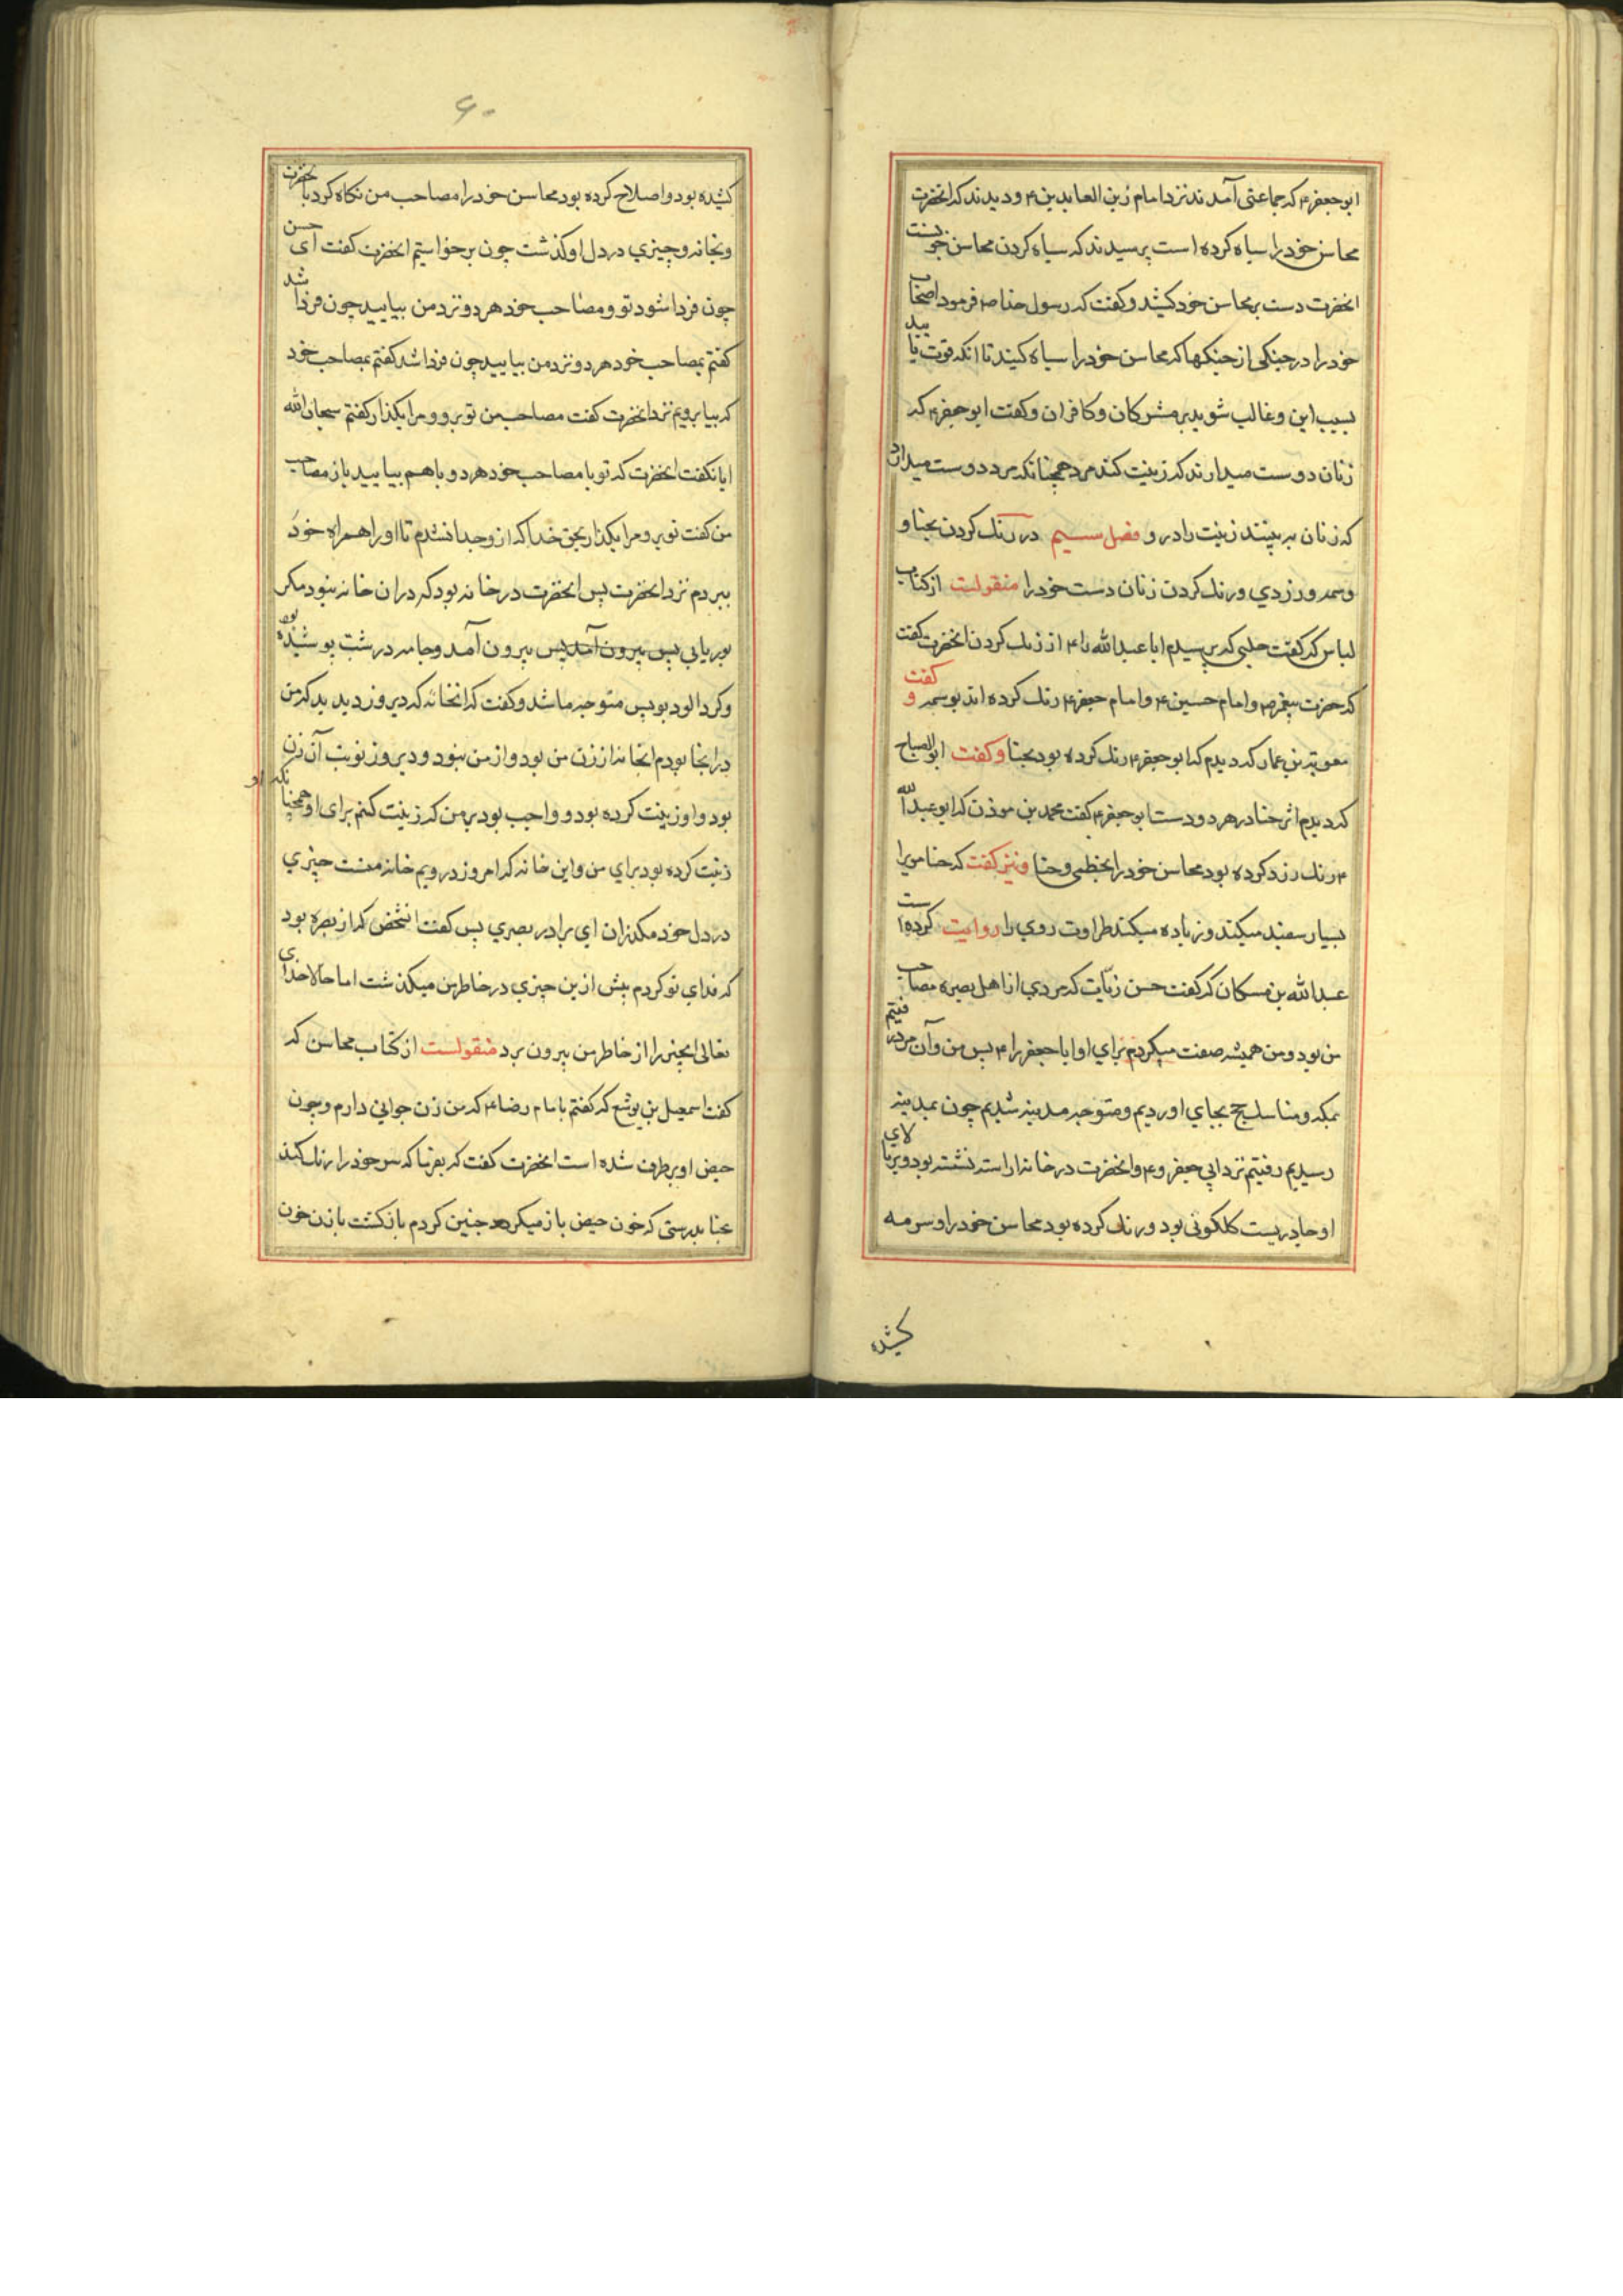 ابوجعفر۴ که جماعتی آمدند نزد امام زین العابدین۴ و دیدند که انحضرت
محاسن خود را سیاه کرده است پرسیدند که سیاه کردن محاسن خوبست
انحضرت دست بر محاسن خود کشید و کفت که رسول خدا ص فرمود اصحاب
خود را در جنکی از جنکها که محاسن خود را سیاه کنید تا انکه قوت یابید
بسبب این و غالب شوید بر مشرکان و کافران و کفت ابوجعفر۴ که
زنان دوست میدارند که زینت کند مرد همچنانکه مرد دوست میدارد
که زنان بر بینند زینت را در و فصل سیم در رنک کردن بحنا و
وسمه و زردی و رنک کردن زنان دست خود را منقولست از کتاب
لباس که کفت حلبی که پرسیدم ابا عبدالله را۴ از رنک کردن انحضرت کفت
که حضرت پیغمبر ص و امام حسین۴ و امام جعفر۴ رنک کرده اند بوسمه و کفت
معویة بن عمار که دیدم که ابوجعفر۴ رنک کرده بود بحنا و کفت ابوالصباح
که دیدم اثر حنا در هر دو دست ابوجعفر۴ کفت محمد بن موذن که ابوعبدالله
۴ رنک زرد کرده بود محاسن خود را بخطمی و حنا و نیز کفت که حنا مویرا
بسیار سفید میکند و زیاده میکند طراوت روی را روایت کرده است
عبدالله بن مسکان که کفت حسن زیات که مردی از اهل بصره مصاحب
من بود و من همیشه صفت میکردم برای او ابا جعفر را۴ پس من و آن مرد رفتیم
بمکه و مناسک حج بجای اوردیم و متوجه مدینه شدیم چون بمدینه
رسیدیم رفتیم نزد ابی جعفر و۴ و انحضرت در خانه اراسته نشسته بود و بر بالای
او چادریست کلکونی بود و رنک کرده بود محاسن خود را و سرمه
کشیده
۶۰
کشیده بود و اصلاح کرده بود محاسن خود را مصاحب من نکاه کرد با حضرت
و بخانه و چیزی در دل او کذشت چون برخواستیم انحضرت کفت ای حسن
چون فردا شود تو و مصاحب خود هر دو نزد من بیایید چون فردا شد
کفتم بمصاحب خود هر دو نزد من بیایید چون فردا شد کفتم بمصاحب خود
که بیا برویم نزد انحضرت کفت مصاحب من تو برو و مرا بکذار کفتم سبحان الله
ایا نکفت انحضرت که تو با مصاحب خود هر دو با هم بیایید باز مصاحب
من کفت تو برو مرا بکذار بحق خدا که از و جدا نشدم تا او را همراه خود
ببردم نزد انحضرت پس انحضرت در خانه بود که در ان خانه نبود مکر
بوریایی پس بیرون آمد پس بیرون آمد و جامه درشت پوشیده بود
و کرد الود بود پس متوجه ما شد و کفت که انخانه که دیروز دیدید که من
در انجا بودم انخانه از زن من بود و از من نبود و دیروز نوبت آن زن
بود و او زینت کرده بود و واجب بود بر من که زینت کنم برای او همچنانکه او
زینت کرده بود برای من و این خانه که امروز در ویم خانه منست چیزی
در دل خود مکذران ای برادر بصری پس کفت انشخص که از بصره بود
که فدای تو کردم پیش ازین چیزی در خاطر من میکذشت اما حالا خدای
تعالی انچیز را از خاطر من بیرون برد منقولست از کتاب محاسن که
کفت اسمعیل بن یوشع که کفتم با امام رضا۴ که من زن جوانی دارم و چون
حیض او برطرف شده است انحضرت کفت که بفرما که سر خود را رنک کند
بحنا بدرستی که خون حیض باز میکردد چنین کردم بازکشت بازن خون